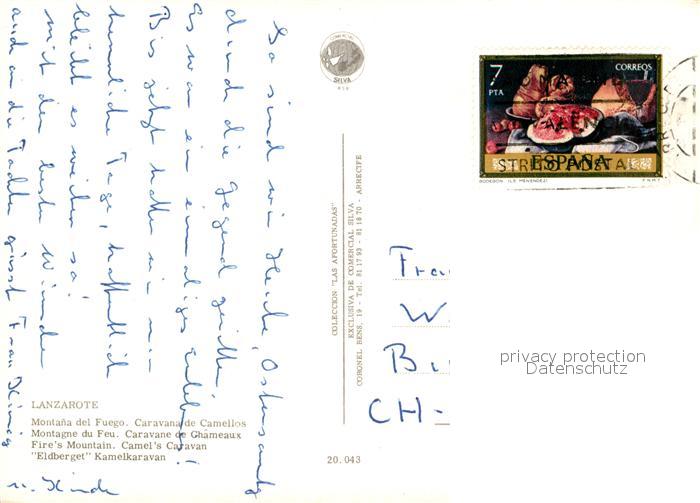 Da sind wir heute, Ostersonntag
durch die Gegend geritten
Es war ein einmaliges Erlebnis!
Bis jetzt hatten wir nur
herrliche Tage, hoffentlich
bleibt es weiter so!
mit den besten Wünschen
auch an die Tochter grüsst Frau König
u. Kinder
COMERCIAL
SILVA
7
PTA
CORREOS
ESPAÑA
STREO POSTA
BODEGON (LE MENENDEZ)
F.N.M.T.
COLECCION "LAS AFORTUNADAS"
EXCLUSIVA DE COMERCIAL SILVA
CORONEL BENS, 19 - Tel. 81 17 93 - 81 18 70 - ARRECIFE
Fra
W
B
CH-
privacy protection
Datenschutz
LANZAROTE
Montaña del Fuego. Caravana de Camellos
Montagne du Feu. Caravane de Chameaux
Fire's Mountain. Camel's Caravan
"Eldberget" Kamelkaravan
20.043